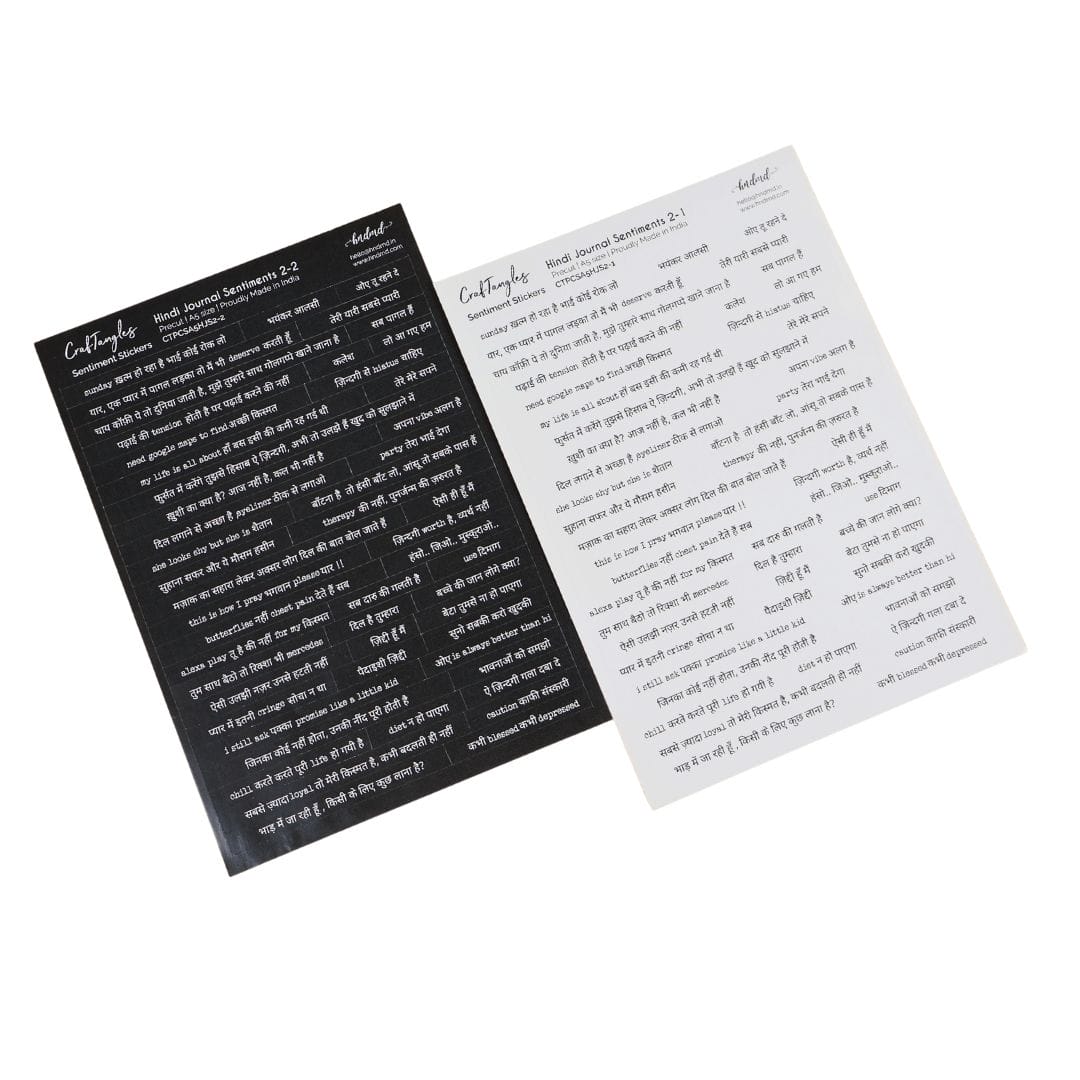 CrafTangles
Sentiment Stickers
Hindi Journal Sentiments 2-2
Precut | A5 size | Proudly Made in India
CTPCSA5HJS2-2
hndmd
hello@hndmd.in
www.hndmd.com
sunday ख़त्म हो रहा है भाई कोई रोक लो भयंकर आलसी ओए तू रहने दे
यार, एक प्यार में पागल लड़का तो मैं भी deserve करती हूँ तेरी यारी सबसे प्यारी
चाय कॉफ़ी पे तो दुनिया जाती है, मुझे तुम्हारे साथ गोलगप्पे खाने जाना है सब पागल हैं
पढ़ाई की tension होती है पर पढ़ाई करने की नहीं कलेश लो आ गए हम
need google maps to find अच्छी किस्मत ज़िन्दगी से hiatus चाहिए
my life is all about हाँ बस इसी की कमी रह गई थी तेरे मेरे सपने
फुर्सत में करेंगे तुझसे हिसाब ऐ ज़िन्दगी, अभी तो उलझे हैं खुद को सुलझाने में
ख़ुशी का क्या है? आज नहीं है, कल भी नहीं है अपना vibe अलग है
दिल लगाने से अच्छा है eyeliner ठीक से लगाओ party तेरा भाई देगा
she looks shy but she is शैतान बाँटना है तो हंसी बाँट लो, आंसू तो सबके पास हैं
सुहाना सफर और ये मौसम हसीन therapy की नहीं, पुनर्जन्म की ज़रुरत है
मज़ाक का सहारा लेकर अक्सर लोग दिल की बात बोल जाते हैं ऐसी ही हूँ मैं
this is how I pray भगवान please यार !! ज़िन्दगी worth है, व्यर्थ नहीं
butterflies नहीं chest pain देते हैं सब हंसो.. जिओ.. मुस्कुराओ..
alexa play तू है की नहीं for my किस्मत सब दारु की गलती है use दिमाग
तुम साथ बैठो तो रिक्शा भी mercedes दिल है तुम्हारा बच्चे की जान लोगे क्या?
ऐसी उलझी नज़र उनसे हटती नहीं ज़िद्दी हूँ मैं बेटा तुमसे ना हो पाएगा
प्यार में इतनी cringe सोचा न था पैदाइशी ज़िद्दी सुनो सबकी करो खुदकी
i still ask पक्का promise like a little kid ओए is always better than hi
जिनका कोई नहीं होता, उनकी नींद पूरी होती है भावनाओं को समझो
chill करते करते पूरी life हो गयी है diet न हो पाएगा ऐ ज़िन्दगी गला दबा दे
सबसे ज़्यादा loyal तो मेरी किस्मत है, कभी बदलती ही नहीं caution काफी संस्कारी
भाड़ में जा रही हूँ , किसी के लिए कुछ लाना है? कभी blessed कभी depressed
CrafTangles
Sentiment Stickers
Hindi Journal Sentiments 2-1
Precut | A5 size | Proudly Made in India
CTPCSA5HJS2-1
hndmd
hello@hndmd.in
www.hndmd.com
sunday ख़त्म हो रहा है भाई कोई रोक लो भयंकर आलसी ओए तू रहने दे
यार, एक प्यार में पागल लड़का तो मैं भी deserve करती हूँ तेरी यारी सबसे प्यारी
चाय कॉफ़ी पे तो दुनिया जाती है, मुझे तुम्हारे साथ गोलगप्पे खाने जाना है सब पागल हैं
पढ़ाई की tension होती है पर पढ़ाई करने की नहीं कलेश लो आ गए हम
need google maps to find अच्छी किस्मत ज़िन्दगी से hiatus चाहिए
my life is all about हाँ बस इसी की कमी रह गई थी तेरे मेरे सपने
फुर्सत में करेंगे तुझसे हिसाब ऐ ज़िन्दगी, अभी तो उलझे हैं खुद को सुलझाने में
ख़ुशी का क्या है? आज नहीं है, कल भी नहीं है अपना vibe अलग है
दिल लगाने से अच्छा है eyeliner ठीक से लगाओ party तेरा भाई देगा
she looks shy but she is शैतान बाँटना है तो हंसी बाँट लो, आंसू तो सबके पास है
सुहाना सफर और ये मौसम हसीन therapy की नहीं, पुनर्जन्म की ज़रुरत है
मज़ाक का सहारा लेकर अक्सर लोग दिल की बात बोल जाते हैं ऐसी ही हूँ मैं
this is how I pray भगवान please यार !! ज़िन्दगी worth है, व्यर्थ नहीं
butterflies नहीं chest pain देते हैं सब हंसो.. जिओ.. मुस्कुराओ..
alexa play तू है की नहीं for my किस्मत सब दारु की गलती है use दिमाग
तुम साथ बैठो तो रिक्शा भी mercedes दिल है तुम्हारा बच्चे की जान लोगे क्या?
ऐसी उलझी नज़र उनसे हटती नहीं ज़िद्दी हूँ मैं बेटा तुमसे ना हो पाएगा
प्यार में इतनी cringe सोचा न था पैदाइशी ज़िद्दी सुनो सबकी करो खुदकी
i still ask पक्का promise like a little kid ओए is always better than hi
जिनका कोई नहीं होता, उनकी नींद पूरी होती है भावनाओं को समझो
chill करते करते पूरी life हो गयी है diet न हो पाएगा ऐ ज़िन्दगी गला दबा दे
सबसे ज़्यादा loyal तो मेरी किस्मत है, कभी बदलती ही नहीं caution काफी संस्कारी
भाड़ में जा रही हूँ , किसी के लिए कुछ लाना है? कभी blessed कभी depressed